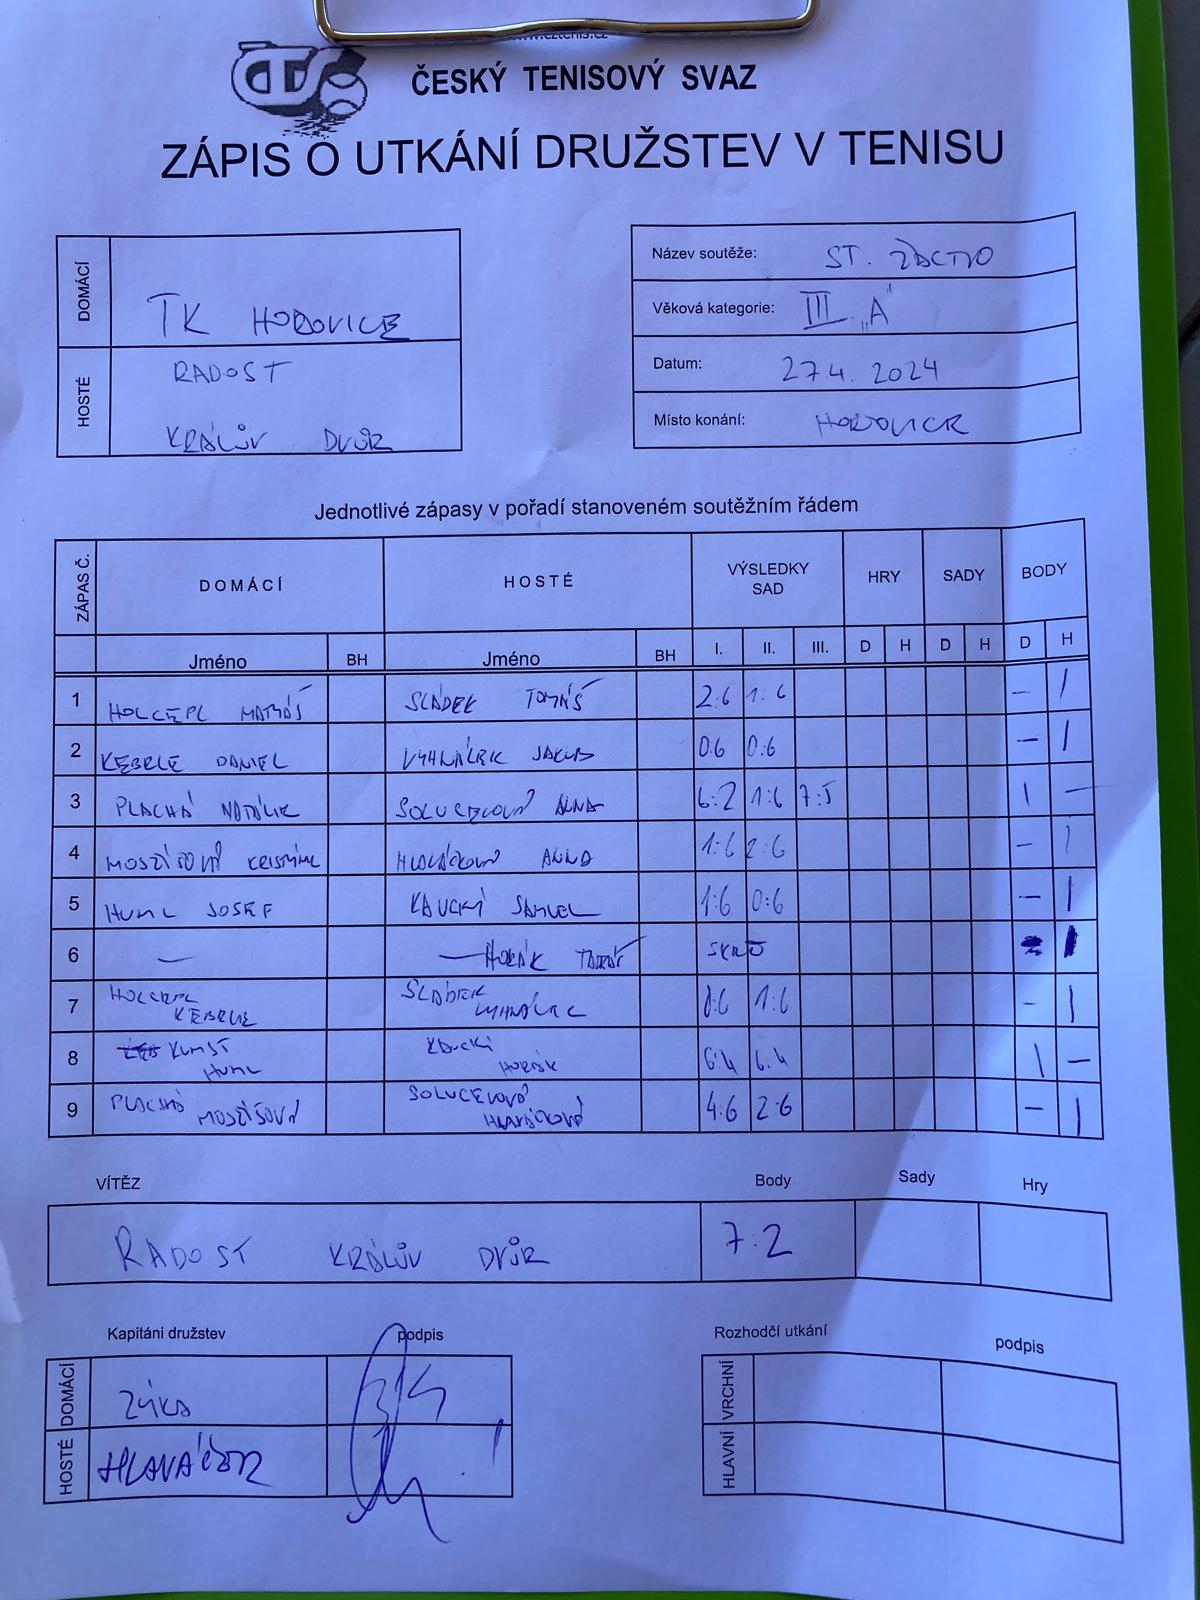 ČESKÝ TENISOVÝ SVAZ
ZÁPIS O UTKÁNÍ DRUŽSTEV V TENISU
DOMÁCÍ TK HOŘOVICE
HOSTÉ RADOST
KRÁLŮV DVŮR
Název soutěže: ST. ŽACTVO
Věková kategorie: III „A“
Datum: 27 4. 2024
Místo konání: HOŘOVICE
Jednotlivé zápasy v pořadí stanoveném soutěžním řádem
ZÁPAS Č. DOMÁCÍ HOSTÉ VÝSLEDKY SAD HRY SADY BODY
Jméno BH Jméno BH I. II. III. D H D H D H
1 HOLCEPL MATYÁŠ SLÁDEK TOMÁŠ 2:6 1:6 – 1
2 KEBRLE DANIEL VYHNÁLEK JAKUB 0:6 0:6 – 1
3 PLACHÁ NATÁLIE SOLUCEVOVÁ ANNA 6:2 1:6 7:5 1 –
4 KRISTÝNA HLAVÁČKOVÁ ANNA 1:6 2:6 – 1
5 HUML JOSEF KAUCKÝ SAMUEL 1:6 0:6 – 1
6 — — HORÁK SKREČ 1
7 HOLCEPL KEBRLE SLÁDEK VYHNÁLEK 0:6 1:6 – 1
8 KUMST HUML KAUCKÝ HORÁK 6:4 6:4 1 –
9 PLACHÁ SOLUCEVOVÁ HLAVÁČKOVÁ 4:6 2:6 – 1
VÍTĚZ Body Sady Hry
RADOST KRÁLŮV DVŮR 7:2
Kapitáni družstev podpis Rozhodčí utkání podpis
DOMÁCÍ ZÝKA VRCHNÍ
HOSTÉ HLAVÁČEK HLAVNÍ